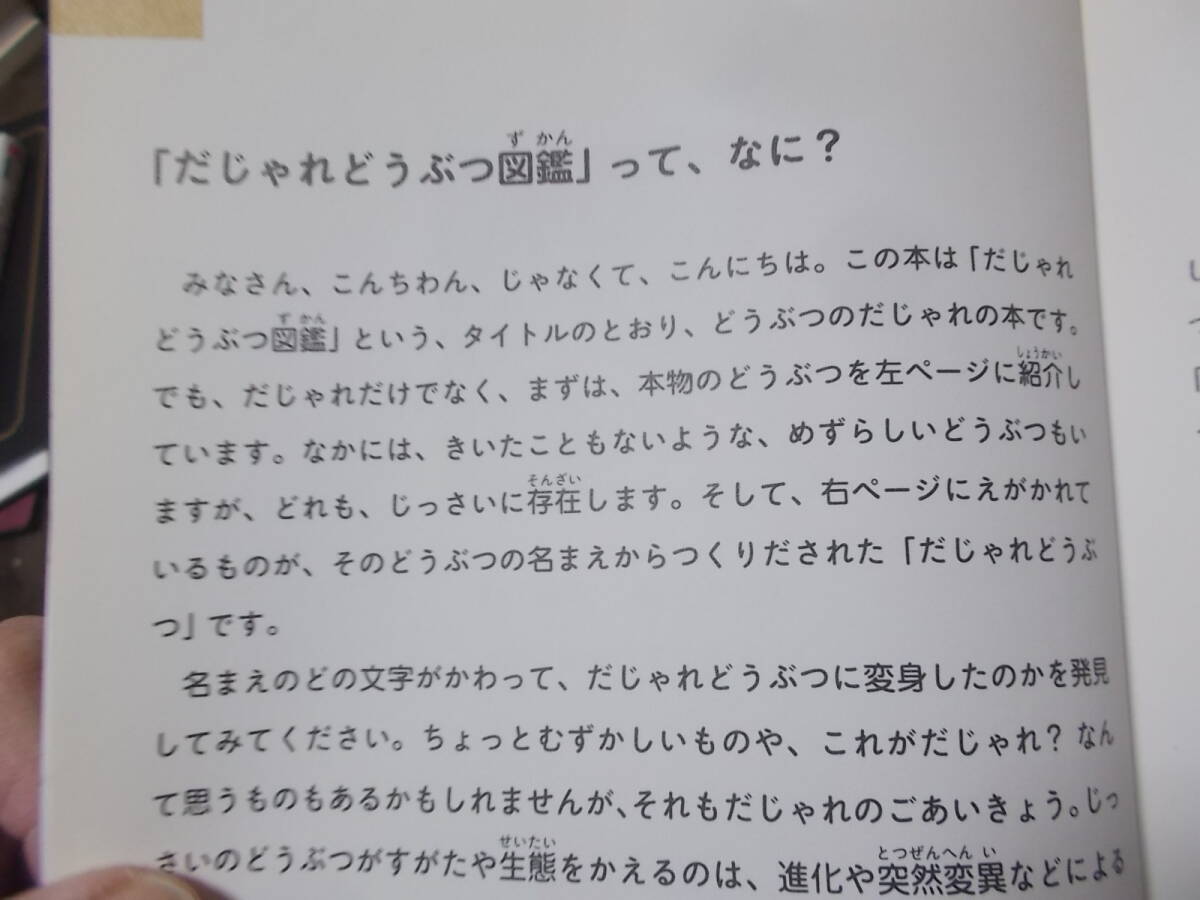 「だじゃれどうぶつ図鑑」って、なに？
みなさん、こんちわん、じゃなくて、こんにちは。この本は「だじゃれ
どうぶつ図鑑」という、タイトルのとおり、どうぶつのだじゃれの本です。
でも、だじゃれだけでなく、まずは、本物のどうぶつを左ページに紹介し
ています。なかには、きいたこともないような、めずらしいどうぶつもい
ますが、どれも、じっさいに存在します。そして、右ページにえがかれて
いるものが、そのどうぶつの名まえからつくりだされた「だじゃれどうぶ
つ」です。
名まえのどの文字がかわって、だじゃれどうぶつに変身したのかを発見
してみてください。ちょっとむずかしいものや、これがだじゃれ？なん
て思うものもあるかもしれませんが、それもだじゃれのごあいきょう。じっ
さいのどうぶつがすがたや生態をかえるのは、進化や突然変異などによる